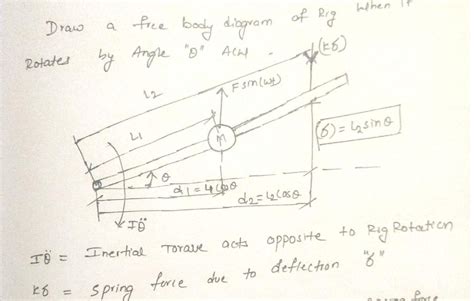 Draw a free body diagram of Rig when if
Rotates by Angle "θ" ACW.
(kδ)
L2
F sin(ωt)
L1
M
(δ) = L2 sinθ
θ
d1 = L1 cosθ
d2 = L2 cosθ
Iθ̈
Iθ̈ = Inertial Torque acts opposite to Rig Rotation
kδ = spring force due to deflection "δ"